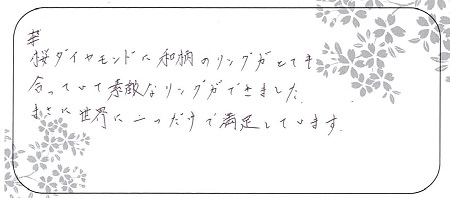 桜ダイヤモンドに和柄のリングがとても
合っていて素敵なリングができました。
まさに世界に一つだけで満足しています。